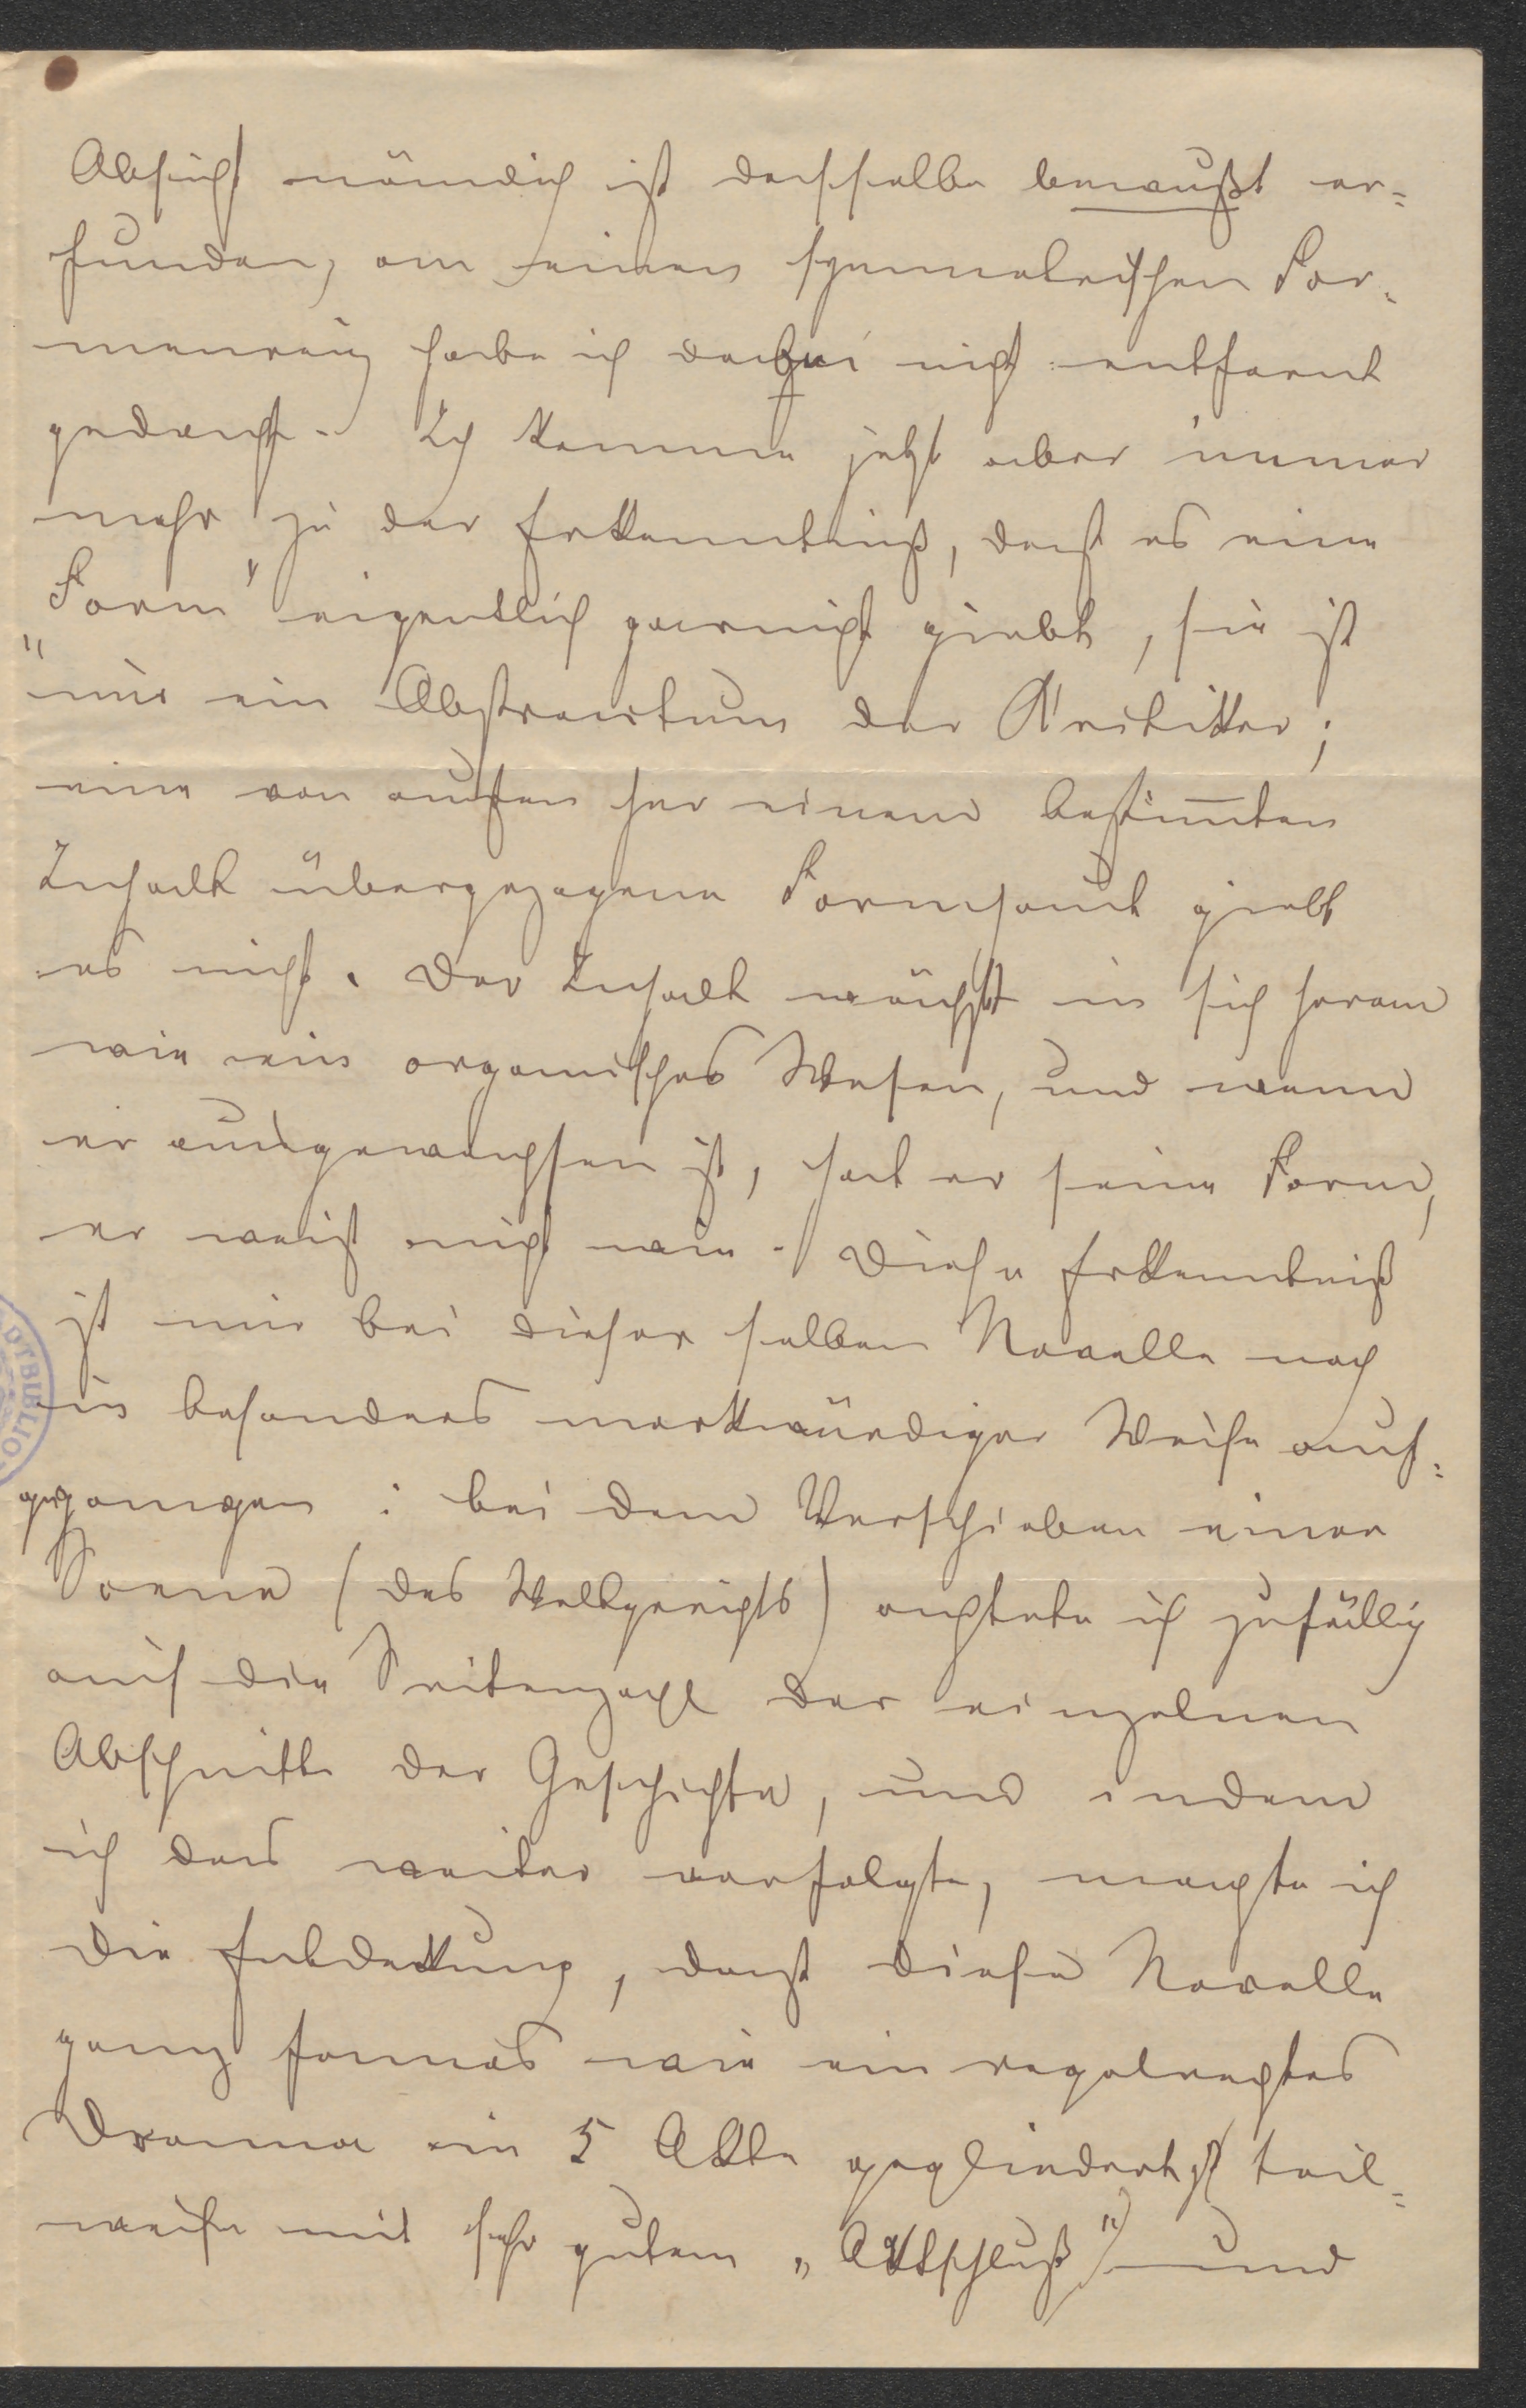 Absicht nämlich ist dasselbe bewußt er=
funden, an einen symmetrischen For=
menreiz habe ich dabei nicht entfernt
gedacht. Ich komme jetzt aber immer
mehr zu der Erkenntniß, daß es eine
„Form“ eigentlich garnicht giebt, sie ist
nur ein Abstractum der Kritiker;
eine von außen her einem bestim̅ten
Inhalt übergezogene Formhaut giebt
es nicht. Der Inhalt wächst in sich heran
wie ein organisches Wesen, und wenn
er ausgewachsen ist, hat er seine Form,
er weiß nicht wie. Diese Erkenntniß
ist mir bei dieser selben Novelle noch
in besonders merkwürdiger Weise auf=
gegangen: bei dem Verschieben einer
Scene (des Weltgerichts) achtete ich zufällig
auf die Seitenzahl der einzelnen
Abschnitte der Geschichte, und indem
ich das weiter verfolgte, machte ich
die Entdeckung, daß diese Novelle
ganz famos wie ein regelrechtes
Drama in 5 Akte gegliedert ist (teil=
weise mit sehr gutem „Aktschluß“) und
OTBIBLIO